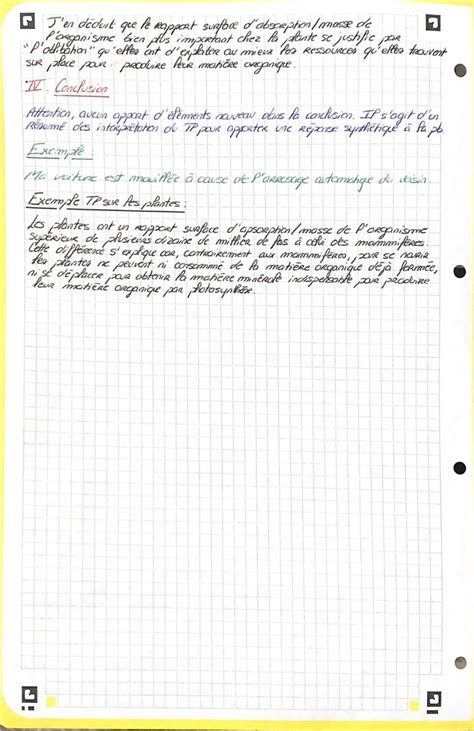 J'en déduit que le rapport surface d'absorption/masse de
l'organisme bien plus important chez la plante se justifie par
"l'obligation" qu'elles ont d'exploiter au mieux les ressources qu'elles trouvent
sur place pour produire leur matière organique.
IV. Conclusion
Attention, aucun apport d'éléments nouveau dans la conclusion. Il s'agit d'un
résumé des interprétation du TP pour apporter une réponse synthétique à la pb.
Exemple :
Ma voiture est mouillée à cause de l'arrosage automatique du voisin.
Exemple TP sur les plantes :
Les plantes ont un rapport surface d'apsorption/masse de l'organisme
supérieur de plusieurs dizaine de millier de fois à celui des mammifères.
Cette différence s'explique car, contrairement aux mammifères, pour se nourrir
les plantes ne peuvent ni consommé de la matière organique déjà formée,
ni se déplacer, pour obtenir la matière minérale indispensable pour produire
leur matière organique par photosynthèse.